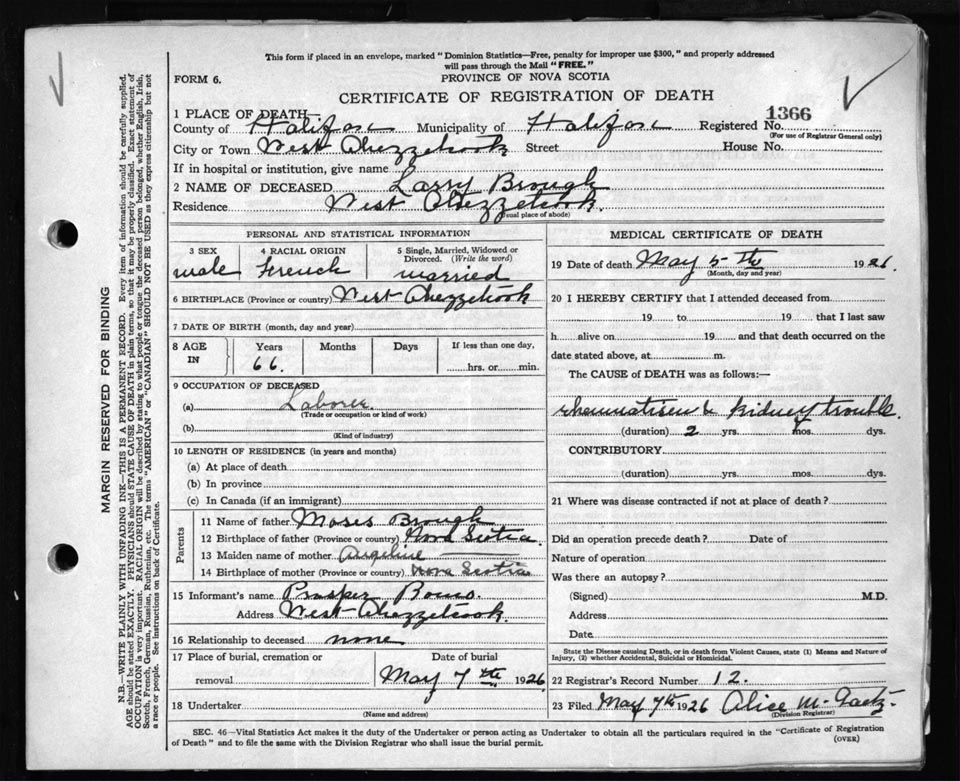 This form if placed in an envelope, marked "Dominion Statistics—Free, penalty for improper use $300," and properly addressed
will pass through the Mail "FREE."
FORM 6.
PROVINCE OF NOVA SCOTIA
CERTIFICATE OF REGISTRATION OF DEATH
1 PLACE OF DEATH—
County of Halifax Municipality of Halifax Registered No. 1366
(For use of Registrar General only)
City or Town West Chezzetcook Street House No.
If in hospital or institution, give name
2 NAME OF DECEASED Larry Brough
Residence West Chezzetcook.
(usual place of abode)
PERSONAL AND STATISTICAL INFORMATION
3 SEX male
4 RACIAL ORIGIN French
5 Single, Married, Widowed or Divorced. (Write the word) married
6 BIRTHPLACE (Province or country) West Chezzetcook
7 DATE OF BIRTH (month, day and year)
8 AGE IN Years Months Days If less than one day,
66. hrs. or min.
9 OCCUPATION OF DECEASED
(a) Laborer.
(Trade or occupation or kind of work)
(b)
(Kind of industry)
10 LENGTH OF RESIDENCE (in years and months)
(a) At place of death
(b) In province
(c) In Canada (if an immigrant)
Parents
11 Name of father Moses Brough
12 Birthplace of father (Province or country) Nova Scotia.
13 Maiden name of mother Angeline
14 Birthplace of mother (Province or country) Nova Scotia
15 Informant's name Prosper
Address West Chezzetcook.
16 Relationship to deceased none
17 Place of burial, cremation or removal
Date of burial
May 7th 1926
18 Undertaker
(Name and address)
MEDICAL CERTIFICATE OF DEATH
19 Date of death May 5th 1926.
(Month, day and year)
20 I HEREBY CERTIFY that I attended deceased from
19 to 19 that I last saw
h alive on 19 and that death occurred on the
date stated above, at m.
The CAUSE of DEATH was as follows:—
rheumatism & kidney trouble.
(duration) 2 yrs. mos. dys.
CONTRIBUTORY
(duration) yrs. mos. dys.
21 Where was disease contracted if not at place of death?
Did an operation precede death? Date of
Nature of operation
Was there an autopsy?
(Signed) M.D.
Address
Date
State the Disease causing Death, or in death from Violent Causes, state (1) Means and Nature of
Injury, (2) whether Accidental, Suicidal or Homicidal.
22 Registrar's Record Number 12.
23 Filed May 7th 1926 Alice M.
(Division Registrar)
SEC. 46—Vital Statistics Act makes it the duty of the Undertaker or person acting as Undertaker to obtain all the particulars required in the "Certificate of Registration
of Death" and to file the same with the Division Registrar who shall issue the burial permit.
(OVER)
MARGIN RESERVED FOR BINDING
N.B.—WRITE PLAINLY WITH UNFADING INK—THIS IS A PERMANENT RECORD. Every item of information should be carefully supplied.
AGE should be stated EXACTLY. PHYSICIANS should STATE CAUSE OF DEATH in plain terms, so that it may be properly classified. Exact statement of
OCCUPATION is very important. RACIAL ORIGIN will be described by stating to what people or tongue the deceased person belonged, whether English, Irish,
Scotch, French, German, Russian, Ruthenian, etc. The terms "AMERICAN" or "CANADIAN" SHOULD NOT BE USED as they express citizenship but not
a race or people. See instructions on back of Certificate.